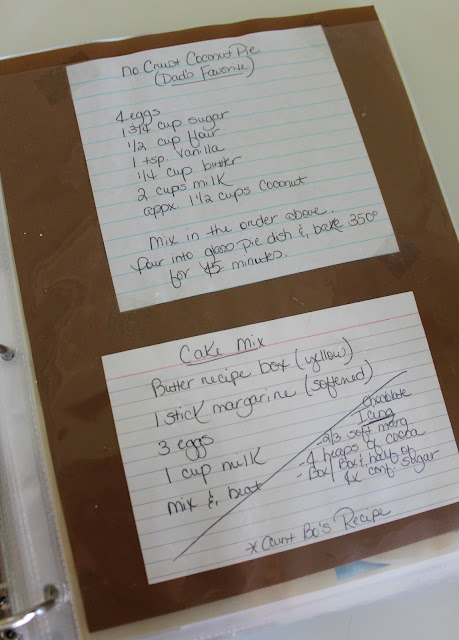 No Crust Coconut Pie
(Dad's Favorite)
4 eggs
1 3/4 cup sugar
1/2 cup flour
1 tsp. vanilla
1/4 cup butter
2 cups milk
appx. 1 1/2 cups coconut
Mix in the order above.
Pour into glass pie dish & bake 350°
for 45 minutes.
Cake Mix
Butter recipe box (yellow)
1 stick margarine (softened)
3 eggs
1 cup milk
mix & beat
Chocolate
Icing
- 2/3 soft marg
- 4 heaps of cocoa
- Box / Box & half of
4x conf. sugar
* Aunt Bo's Recipe